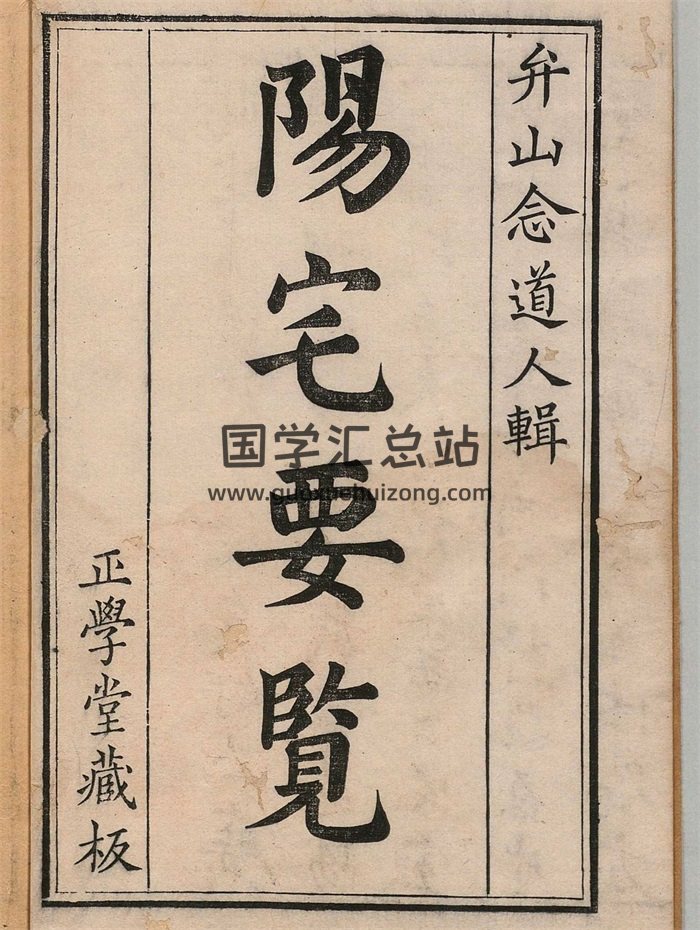 弁山念道人輯
陽宅要覧
正學堂藏板
国学汇总站
www.guoxuehuizong.com